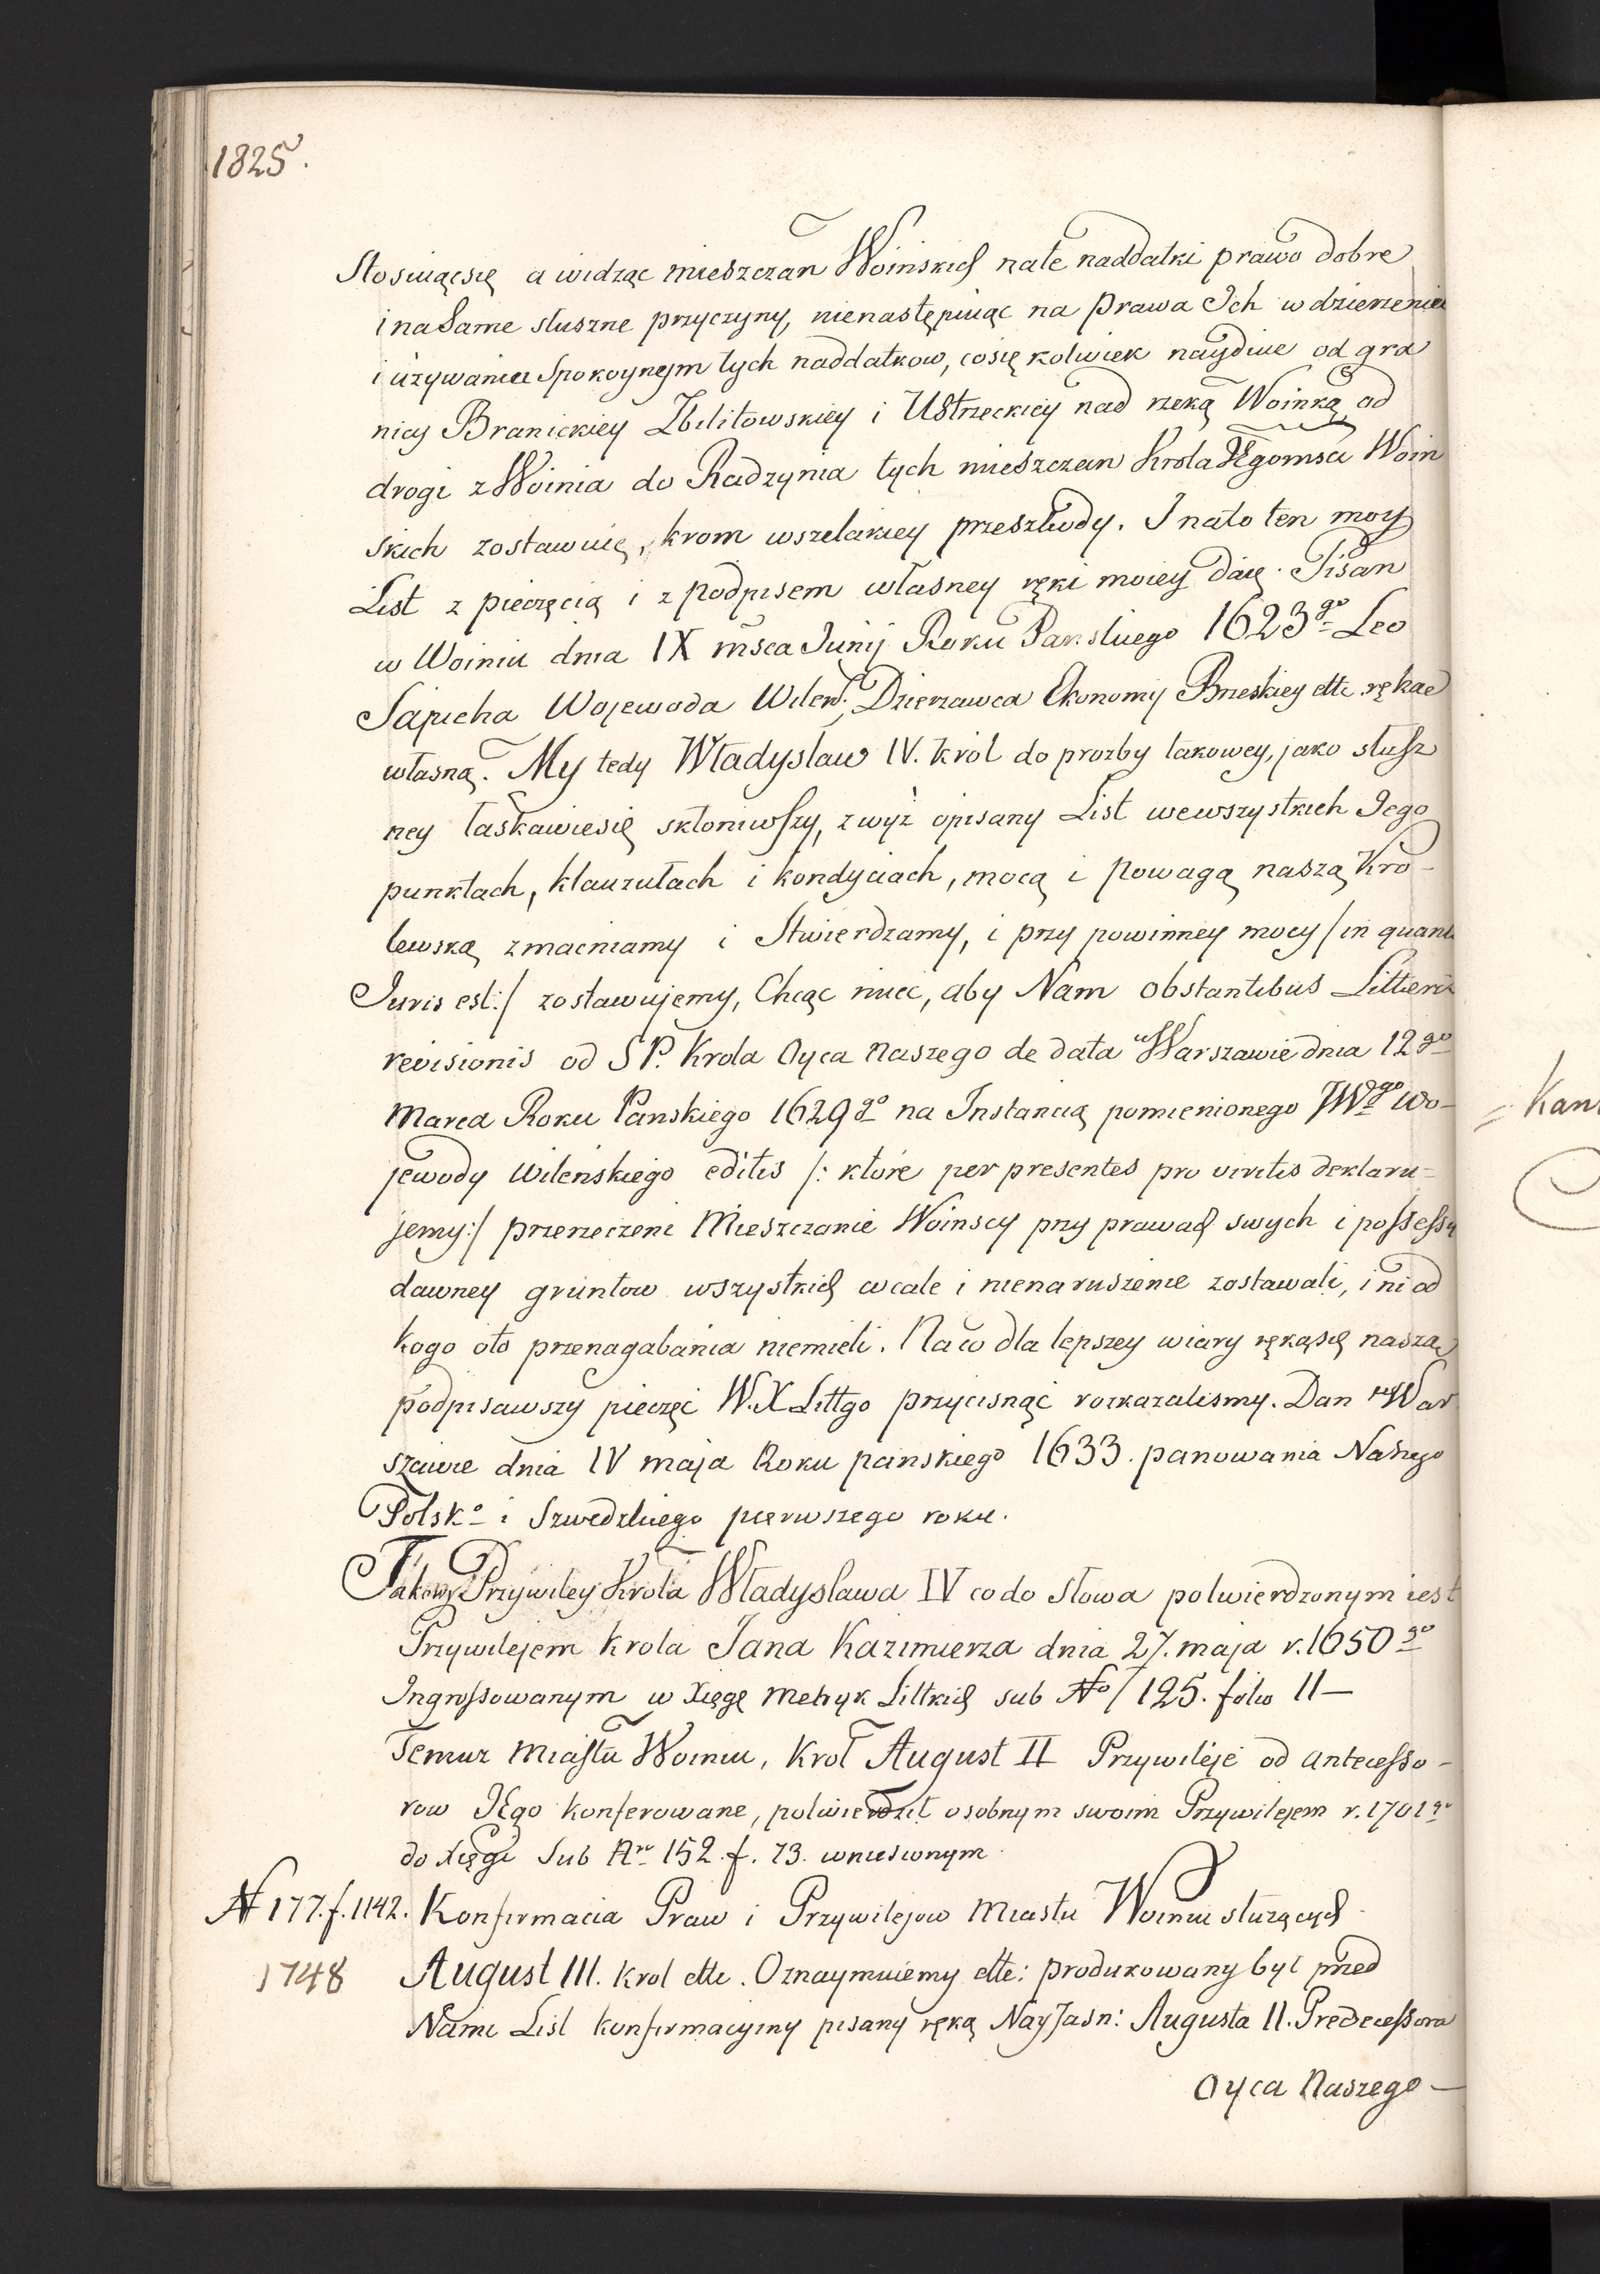 1825.
Stosuiącsię a widząc mieszczan Woinskich nate naddatki prawo dobre
i na Same sluszne przyczyny, nienastępuiąc na prawa Ich w dzierzeniu
i używaniu Spokoynym tych naddatkow, cosię kolwiek nayduie od gra
nicy Branickiey Zbilitowskiey i Ustrzeckiey nad rzeką Woinką od
drogi z Woinia do Radzynia tych mieszczan Krola JEgomsci Woin
skich zostawuię, krom wszelakiey przeszkody. I nato ten moy
List z pieczęcią i z podpisem własney ręki moiey daię. Pisan
w Woiniu dnia IX msca Junij Roku Panskiego 1623go Leo
Sapieha Wojewoda Wilen: Dzierzawca Ekonomy Brzeskiey ette ręką
własną. My tedy Władysław IV. Krol do prozby takowey, jako słusz
ney łaskawiesię skłoniwszy, zwyż opisany List wewszystkich Jego
punktach, klauzułach i kondyciach, mocą i powagą naszą Kro-
lewską zmacniamy i Stwierdzamy, i przy powinney mocy /in quantu
Juris est:/ zostawujemy, Chcąc miec, aby Nam obstantibus Litteris
revisionis od SP. Krola Oyca Naszego de data w Warszawie dnia 12go
Marca Roku Panskiego 1629go na Instancią pomienionego JWgo Wo-
jewody Wilenskiego editis /: które per presentes pro irritis deklaru=
jemy:/ przerzeczeni Mieszczanie Woinscy przy prawach swych i possessyi
dawney gruntow wszystkich wcale i nienaruszenie zostawali, i ni od
kogo oto przenagabania niemieli. Naco dla lepszey wiary rękąsię naszą
podpisawszy pieczęć W.X Littgo przycisnąć rozkazalismy. Dan w War
szawie dnia IV maja Roku panskiego 1633. panowania Naszego
Polsko i Szwedzkiego pierwszego roku.
Takowy Przywiley Krola Władysława IV co do słowa potwierdzonym iest
Przywilejem Krola Jana Kazimierza dnia 27. maja r. 1650go
Ingrossowanym w Xięgę Metryk Littkich sub No/125. folio 11—
Temuz Miastu Woiniu, Krol August II Przywileje od antecesso-
row JEgo konferowane, potwierdził osobnym swoim Przywilejem r. 1701go
do xięgi Sub Nro 152. f. 73. wniesionym.
N 177. f. 1142. Konfirmacia Praw i Przywilejow Miastu Woiniu służących
1748 August III. Krol ette. Oznaymuiemy ette: produkowany był przed
Nami List konfirmacyiny pisany ręką NayJasn: Augusta II. Predecessora
Oyca Naszego—
Kan